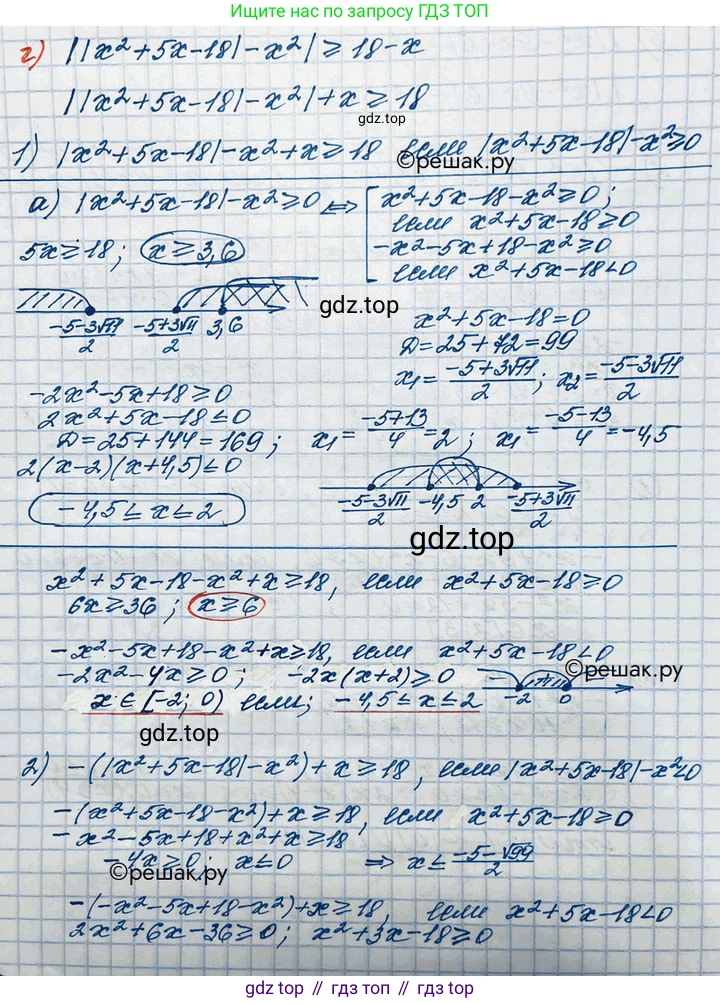 Ищите нас по запросу ГДЗ ТОП
г) ||x²+5x-18|-x²| ≥ 18-x
||x²+5x-18|-x²|+x ≥ 18
gdz.top
1) |x²+5x-18|-x²+x ≥ 18 если |x²+5x-18|-x² ≥ 0
©решак.ру
а) |x²+5x-18|-x² ≥ 0 ⇔ [ x²+5x-18-x² ≥ 0;
если x²+5x-18 ≥ 0
5x ≥ 18; x ≥ 3,6
-x²-5x+18-x² ≥ 0
если x²+5x-18 < 0
gdz.top
(-5-3√11)/2 (-5+3√11)/2 3,6
x²+5x-18=0
D=25+72=99
x₁=(-5+3√11)/2; x₂=(-5-3√11)/2
-2x²-5x+18 ≥ 0
2x²+5x-18 ≤ 0
D=25+144=169; x₁=(-5+13)/4=2; x₁=(-5-13)/4=-4,5
2(x-2)(x+4,5) ≤ 0
-4,5 ≤ x ≤ 2
(-5-3√11)/2 -4,5 2 (-5+3√11)/2
gdz.top
x²+5x-18-x²+x ≥ 18, если x²+5x-18 ≥ 0
6x ≥ 36; x ≥ 6
-x²-5x+18-x²+x ≥ 18, если x²+5x-18 < 0
-2x²-4x ≥ 0; -2x(x+2) ≥ 0
©решак.ру
-2 0
x ∈ [-2; 0) если; -4,5 ≤ x ≤ 2
gdz.top
2) -(|x²+5x-18|-x²)+x ≥ 18, если |x²+5x-18|-x² < 0
-(x²+5x-18-x²)+x ≥ 18, если x²+5x-18 ≥ 0
-x²-5x+18+x²+x ≥ 18
-4x ≥ 0; x ≤ 0 ⇒ x ≤ (-5-√99)/2
©решак.ру
-(-x²-5x+18-x²)+x ≥ 18, если x²+5x-18 < 0
2x²+6x-36 ≥ 0; x²+3x-18 ≥ 0
gdz.top // гдз.топ // gdz.top // гдз.топ